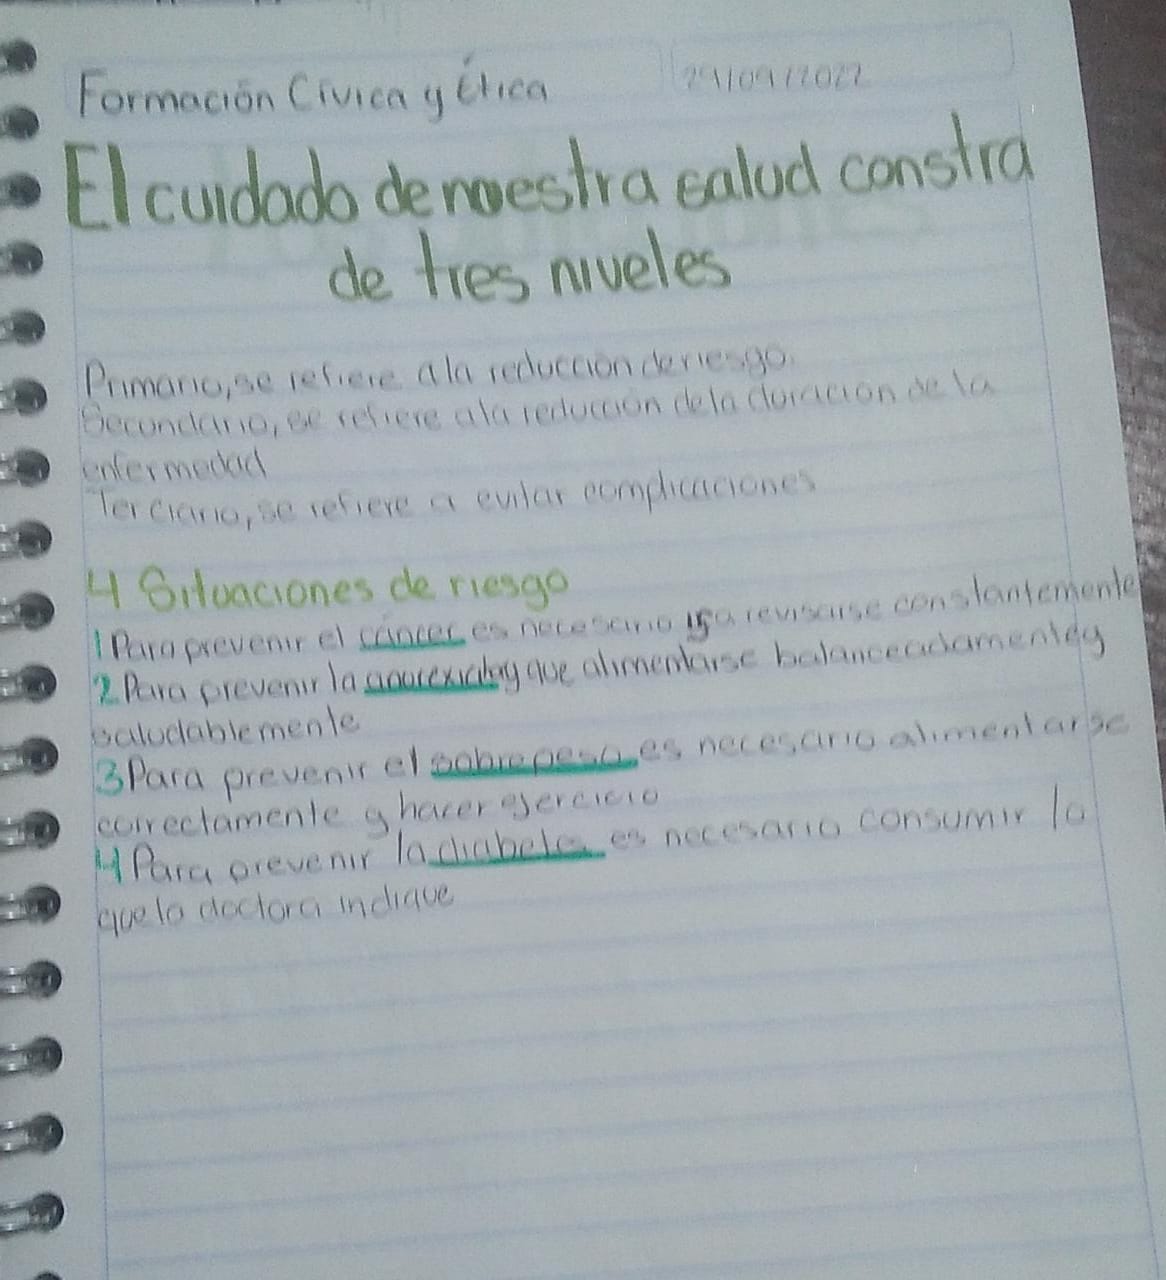 Formación Cívica y Ética 29/09/2022
El cuidado de nuestra salud constra
de tres niveles
Primario, se refiere a la reducción de riesgo.
Secundario, se refiere a la reducción de la duración de la
enfermedad
Terciario, se refiere a evitar complicaciones
4 Situaciones de riesgo
1 Para prevenir el cáncer es necesario revisarse constantemente
2 Para prevenir la anorexia hay que alimentarse balanceadamente y
saludablemente
3 Para prevenir el sobrepeso es necesario alimentarse
correctamente y hacer ejercicio
4 Para prevenir la diabetes es necesario consumir lo
que la doctora indique